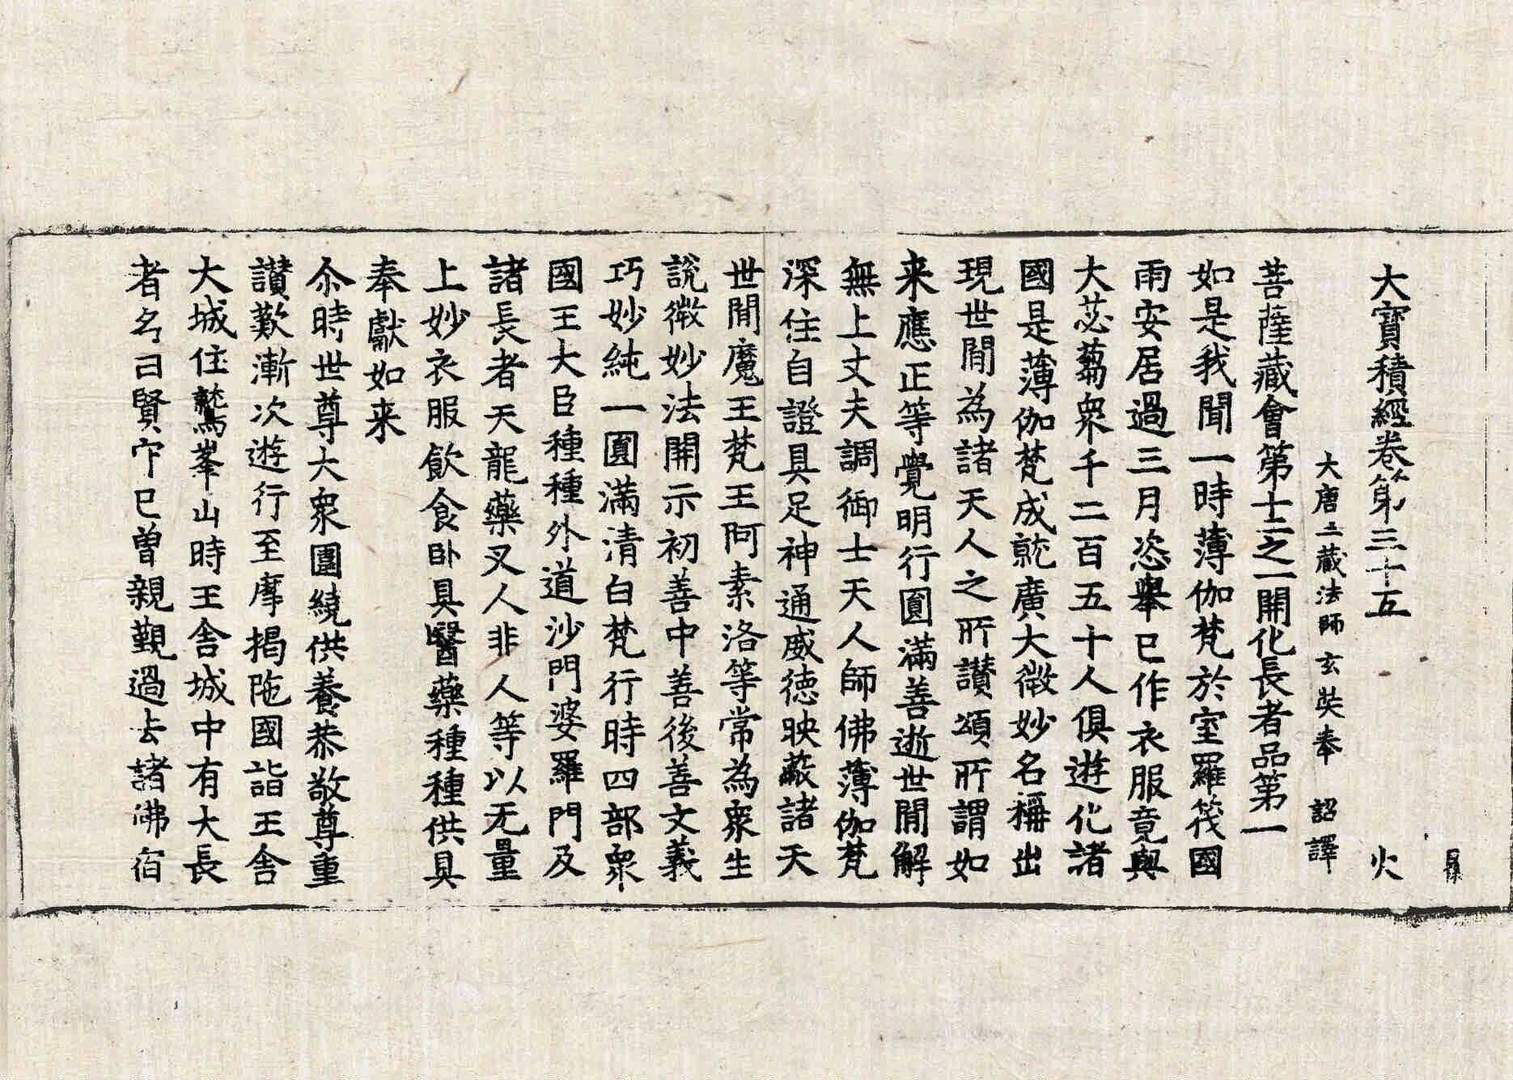 大寶積經卷第三十五　火
大唐三藏法師玄奘奉　詔譯
菩薩藏會第十二之一開化長者品第一
如是我聞一時薄伽梵於室羅筏國
雨安居過三月恣舉已作衣服竟與
大苾芻眾千二百五十人俱遊化諸
國是薄伽梵成就廣大微妙名稱出
現世間為諸天人之所讃頌所謂如
来應正等覺明行圓滿善逝世間解
無上丈夫調御士天人師佛薄伽梵
深住自證具足神通威德映蔽諸天
世間魔王梵王阿素洛等常為衆生
說微妙法開示初善中善後善文義
巧妙純一圓滿清白梵行時四部衆
國王大臣種種外道沙門婆羅門及
諸長者天龍藥叉人非人等以无量
上妙衣服飲食卧具醫藥種種供具
奉獻如来
尒時世尊大衆圍繞供養恭敬尊重
讃歎漸次遊行至摩揭陁國詣王舍
大城住鷲峯山時王舍城中有大長
者名曰賢守已曾親覲過去諸佛宿